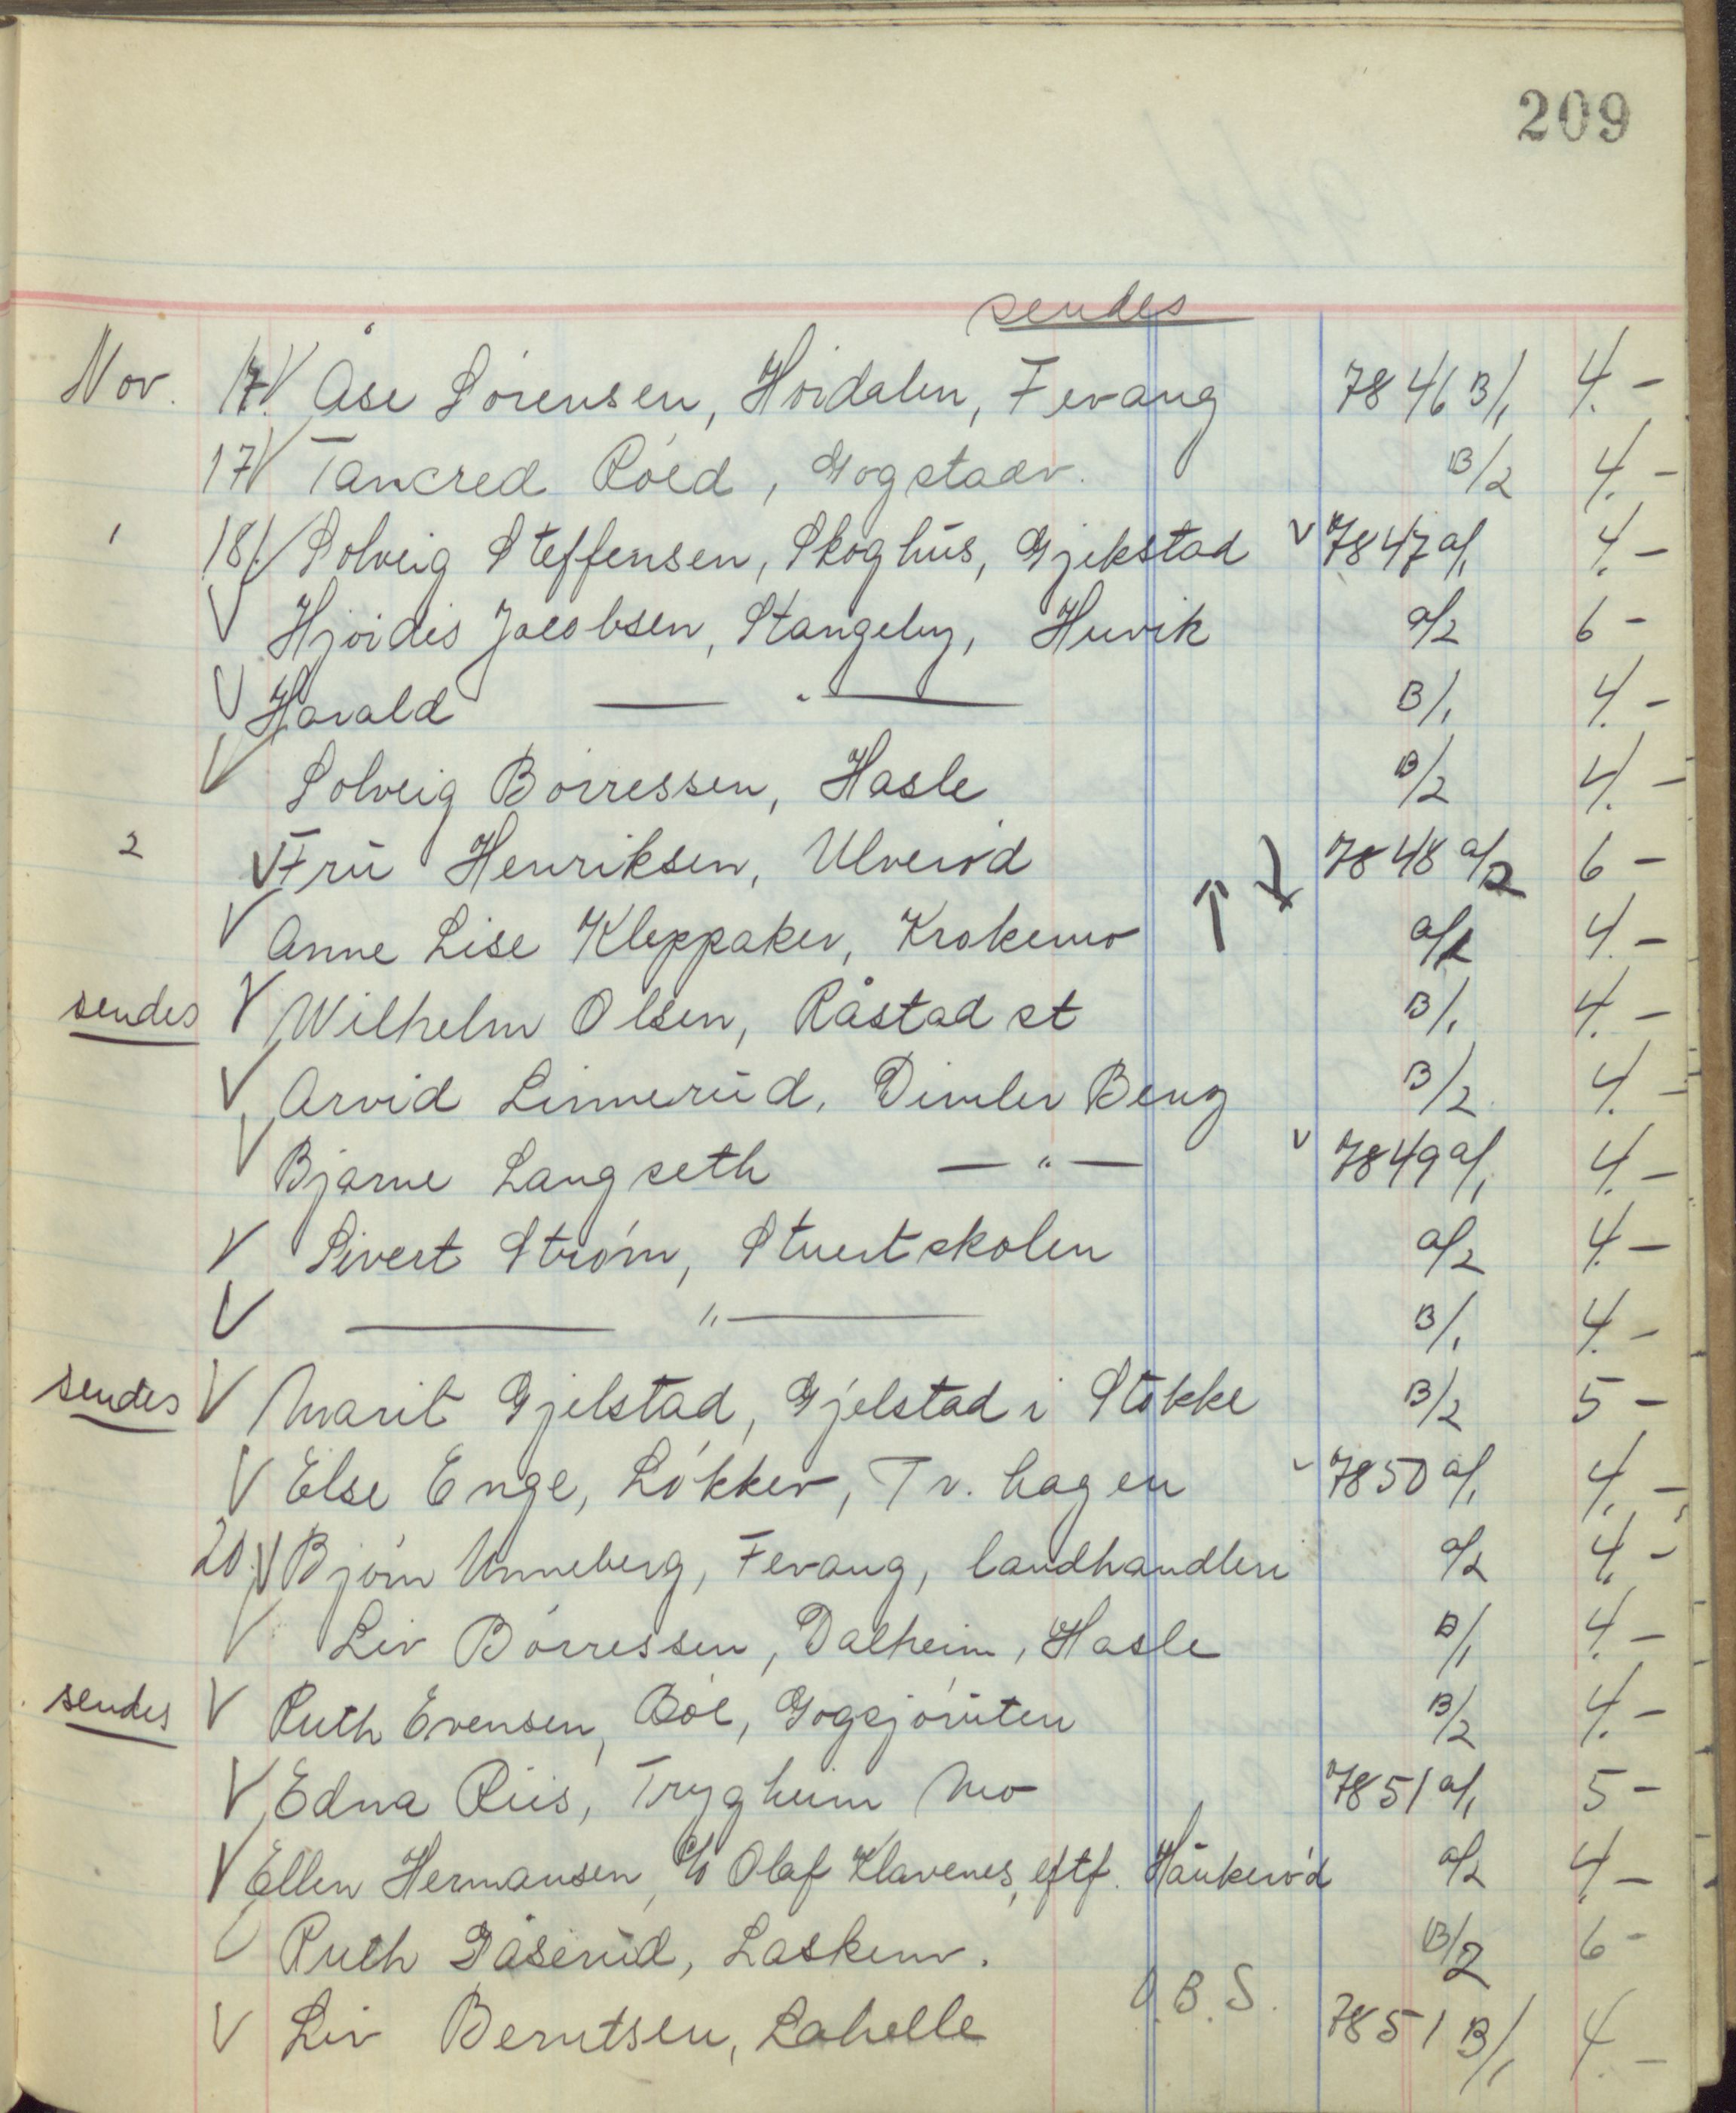 209
sendes
Nov. 17. V Åse Sörensen, Höidalen, Fevang 7846 B/1 4.-
17 V Tancred Röed, Gogstadv. B/2 4.-
1 18/ V Solveig Steffensen, Skoghus, Gjekstad V 7847 a/1 4.-
V Hjördis Jacobsen, Stangeby, Huvik a/2 6-
V Harald — " — B/1 4.-
V Solveig Börressen, Hasle B/2 4.-
2 V Fru Henriksen, Ulveröd ↓ 7848 a/2 6-
V Anne Lise Kleppaker, Krokemo ↑ a/1 4.-
sendes V Wilhelm Olsen, Råstad st B/1 4.-
V Arvid Linnerud, Dimler Beng B/2 4.-
V Bjarne Langseth — " — V 7849 a/1 4.-
V Sivert Ström, Stuertskolen a/2 4.-
V — " — B/1 4.-
sendes V Marit Gjelstad, Gjelstad i Stokke B/2 5-
V Else Enge, Lökker, Tv. hagen 7850 a/1 4.-
20. V Björn Unneberg, Fevang, landhandleri a/2 4.-
V Liv Börressen, Dalheim, Hasle B/1 4.-
sendes V Ruth Evensen, Böe, Gogsjöruten B/2 4.-
V Edna Riis, Trygheim Mo 7851 a/1 5-
V Ellen Hermansen, c/o Olaf Klavenes, eftf. Haukeröd a/2 4.-
V Ruth Gåserud, Laskenv. B/2 6-
V Liv Berntsen, Lahelle O.B.S. 7851 B/1 4.-